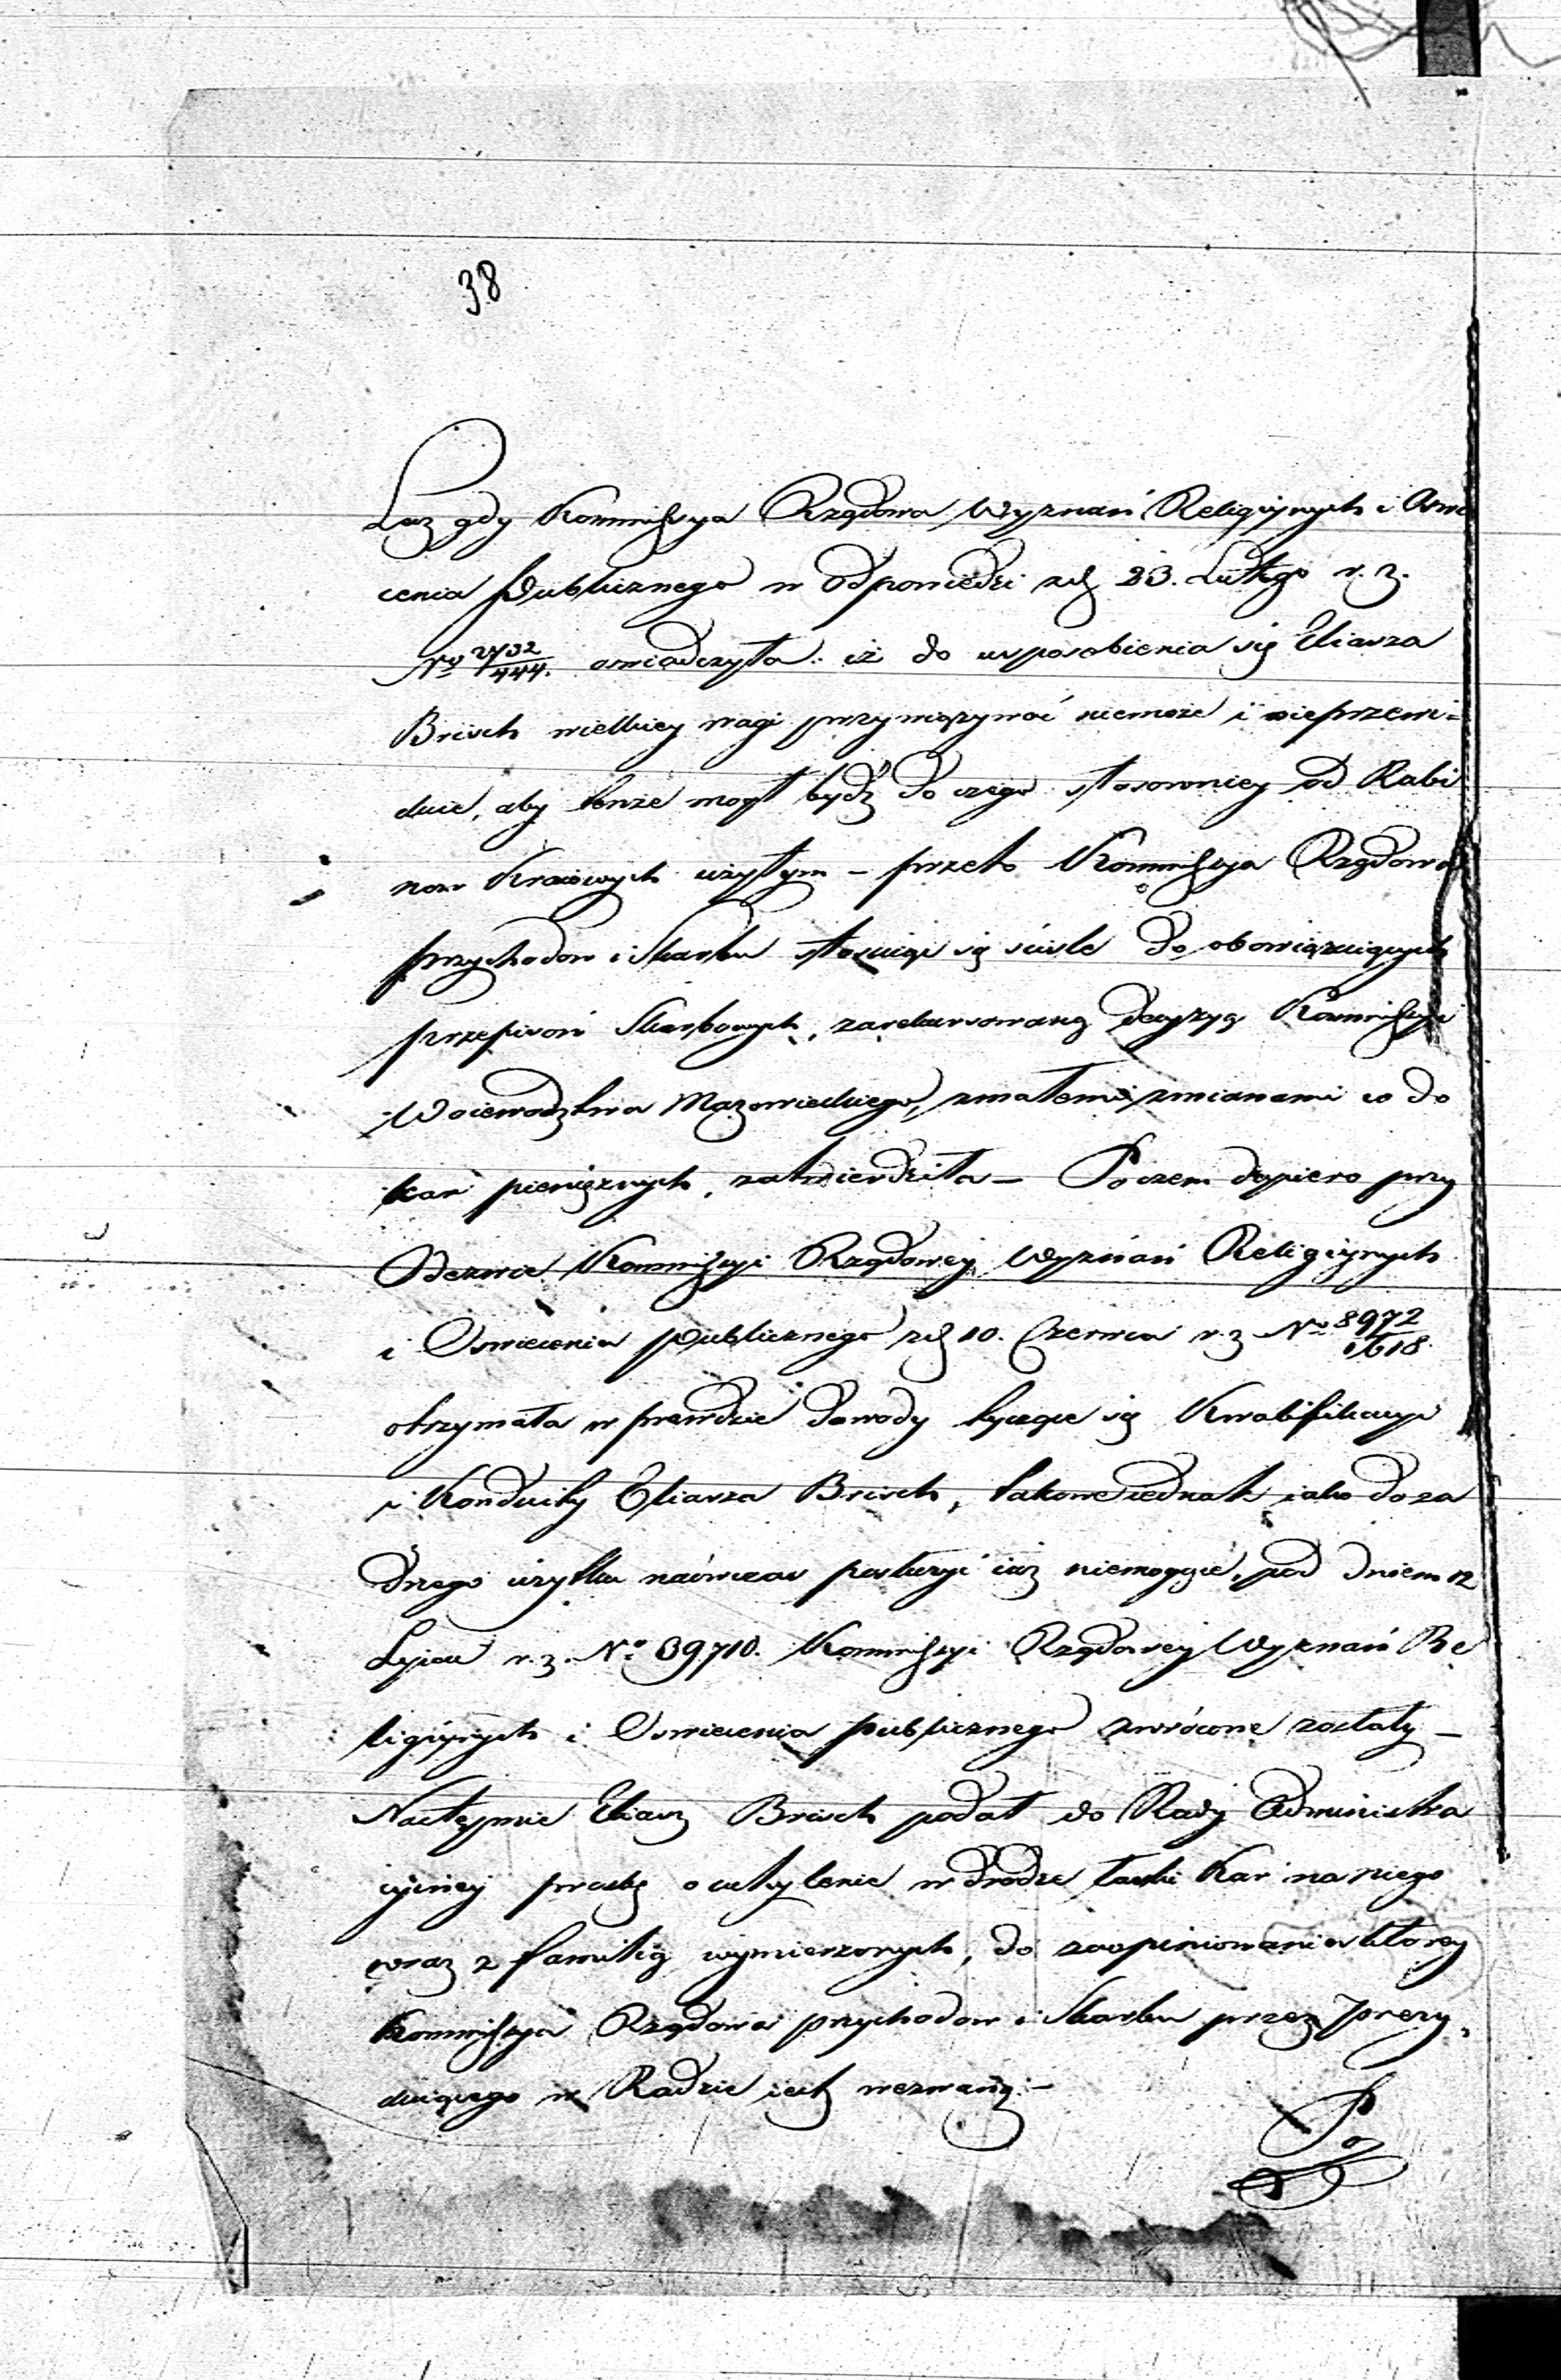 38
Lecz gdy Kommissya Rządowa Wyznań Religijnych i Oswie
cenia Publicznego w Odpowiedzi z d. 23. Lutego r. z.
No 2732/444. oswiadczyła: iż do usposobienia się Eliasza
Brisch wielkiey wagi przywiązywać niemoże i nieprzewi=
duie, aby tenże mogł bydź do czego stosowniey od Rabi
now Kraiowych użytym – przeto Kommissya Rządowa
przychodow i Skarbu stosuiąc się ściśle do obowiązuiących
przepisow Skarbowych, zarekursowaną decyzyą Kommissyi
Woiewodztwa Mazowieckiego, z małemi zmianami co do
kar pieniężnych, zatwierdziła – Poczem dopiero przy
Odezwie Kommissyi Rządowey Wyznań Religijnych
i Oswiecenia publicznego z d. 10. Czerwca r. z No 8972/1618.
otrzymała w prawdzie dowody tyczące się Kwalifikacyi
i Konduity Eliasza Brisch, takowe iednak iako do ża
dnego użytku naówczas posłużyć iuż niemogące, pod dniem 12
Lipca r. z. No 39710. Kommissyi Rządowey Wyznań Re
ligijnych i Oswiecenia publicznego zwrócone zostały –
Następnie Eliasz Brisch podał do Rady Administra
cyiney prosbę o uchylenie w drodze łaski Kar na niego
wraz z familią wymierzonych, do zaopiniowania ktorey
Kommissya Rządowa przychodow i Skarbu przez Prezy,
duiącego w Radzie iest wezwaną. –
Po